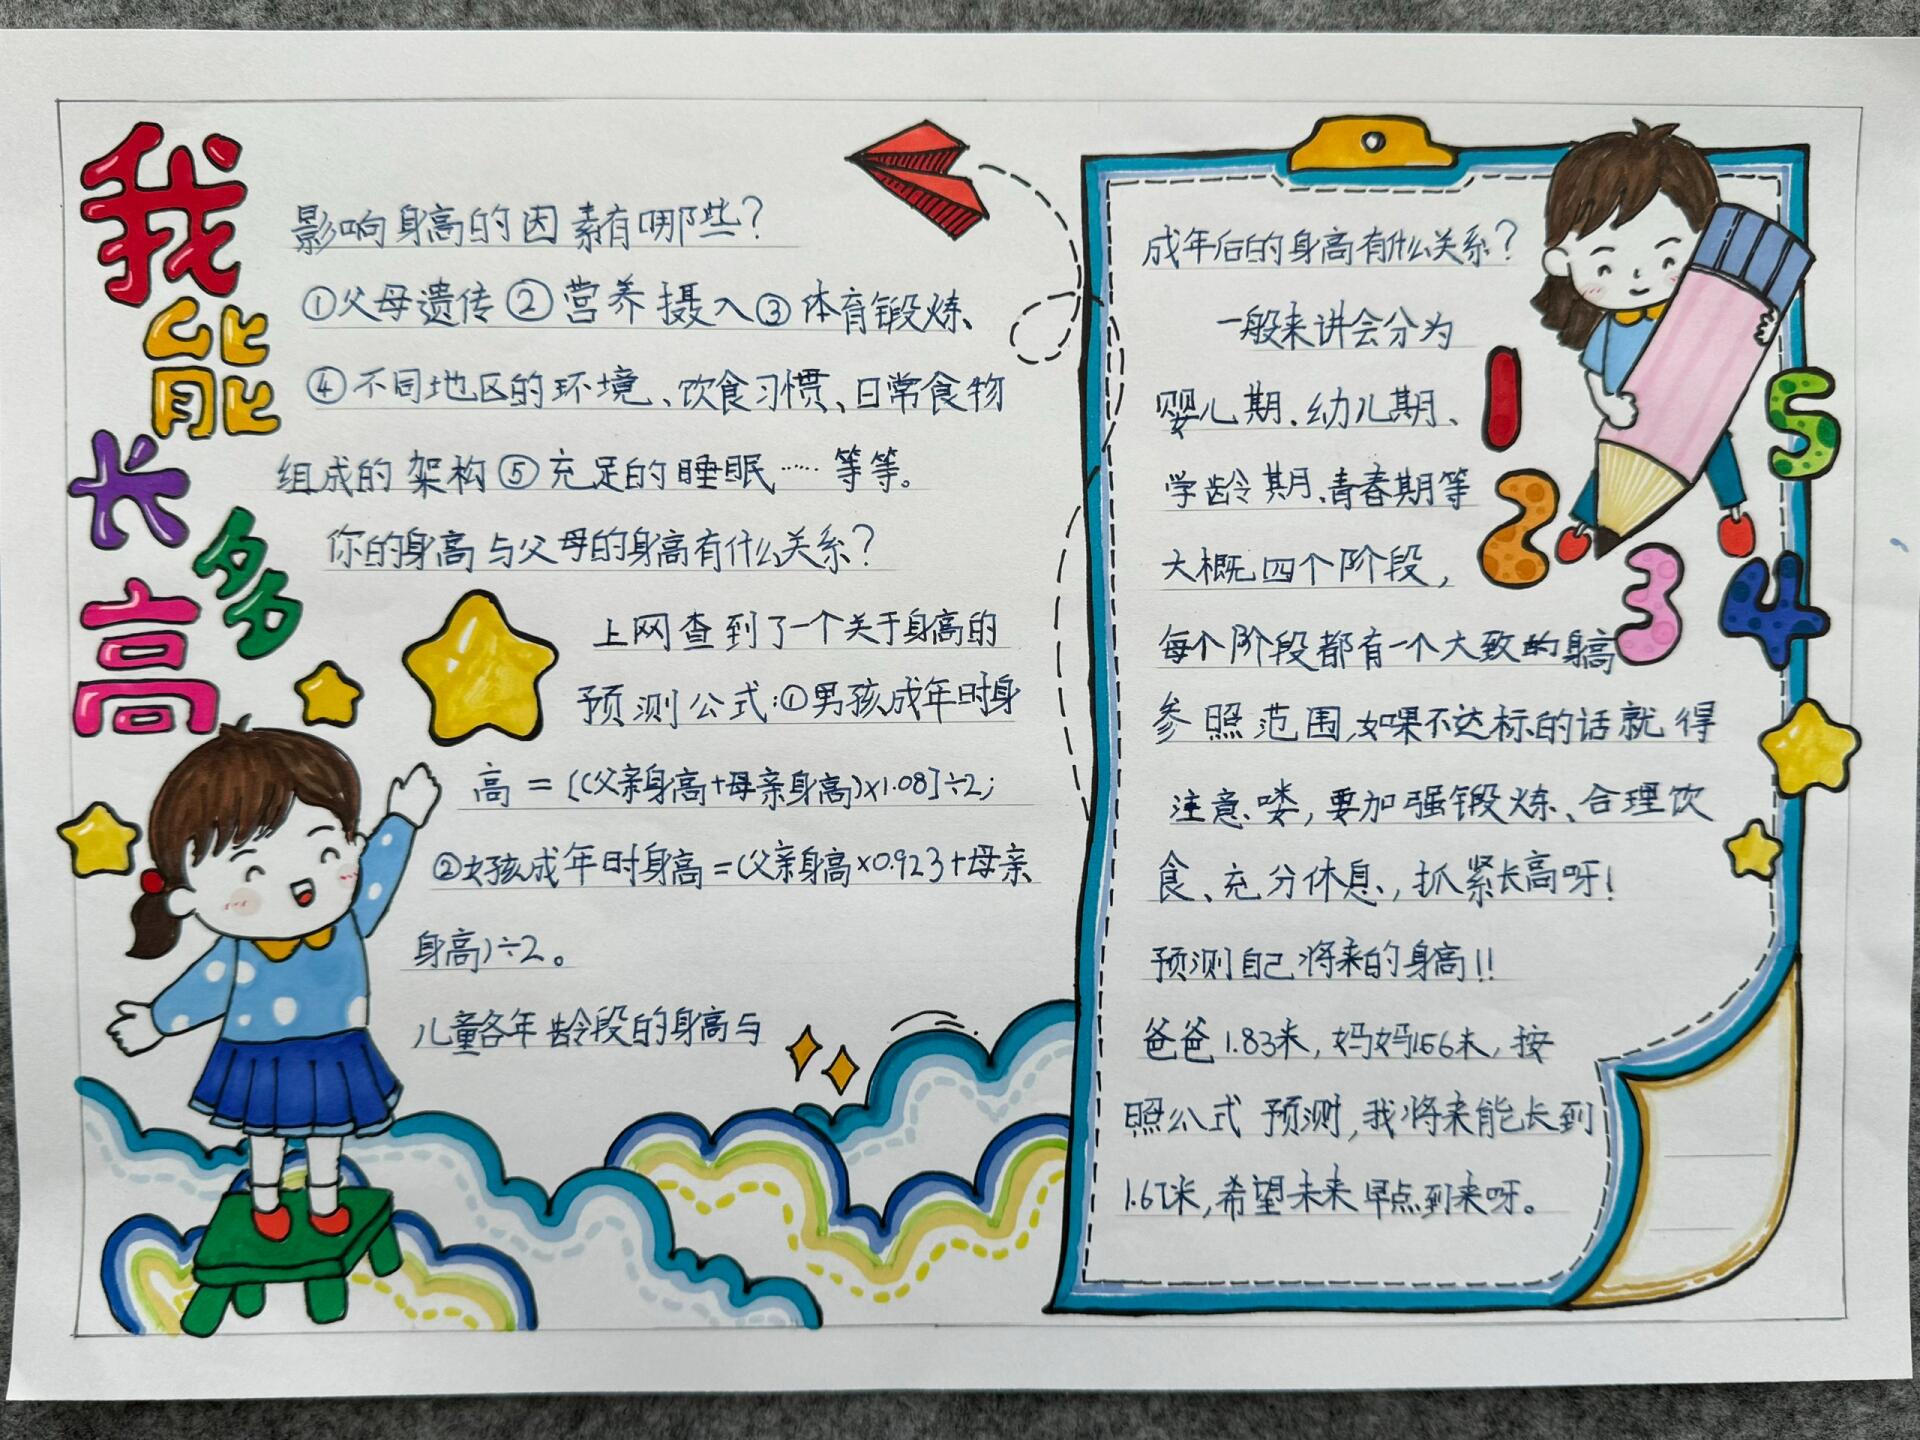 我能长多高
影响身高的因素有哪些?
①父母遗传②营养摄入③体育锻炼、
④不同地区的环境、饮食习惯、日常食物
组成的架构⑤充足的睡眠……等等。
你的身高与父母的身高有什么关系?
上网查到了一个关于身高的
预测公式:①男孩成年时身
高=[(父亲身高+母亲身高)×1.08]÷2;
②女孩成年时身高=(父亲身高×0.923+母亲
身高)÷2。
儿童各年龄段的身高与
成年后的身高有什么关系?
一般来讲会分为
婴儿期、幼儿期、
学龄期、青春期等
大概四个阶段,
每个阶段都有一个大致的身高
参照范围,如果不达标的话就得
注意喽,要加强锻炼、合理饮
食、充分休息,抓紧长高呀!
预测自己将来的身高!!
爸爸1.83米,妈妈1.56米,按
照公式预测,我将来能长到
米,希望未来早点到来呀。
1
2
3
4
5